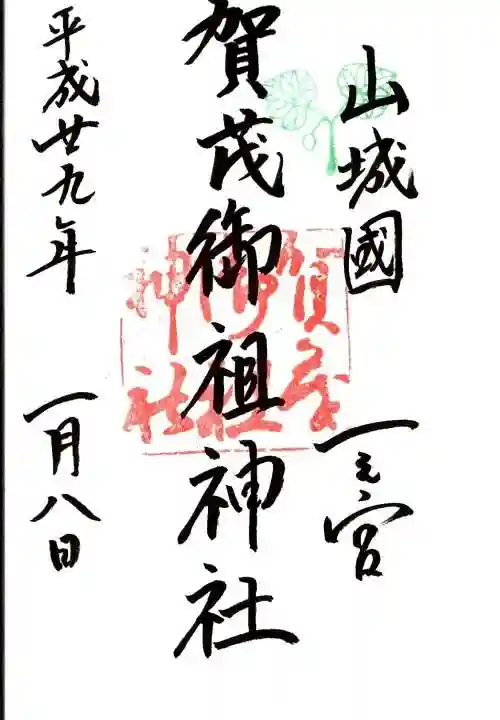 山城國 一之宮
賀茂御祖神社
賀茂
御祖
神社
平成廿九年 一月八日